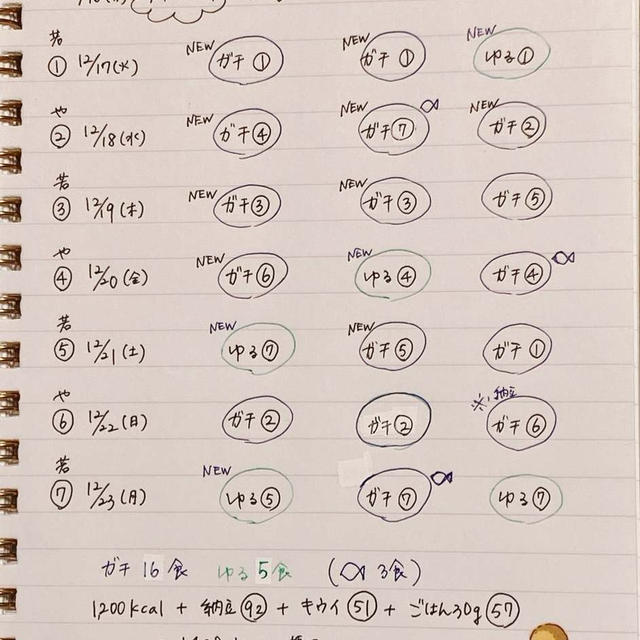 若
① 12/17(火) NEW ガチ① NEW ガチ① NEW ゆる①
や
② 12/18(水) NEW ガチ④ NEW ガチ⑦ NEW ガチ②
若
③ 12/19(木) NEW ガチ③ NEW ガチ③ ガチ⑤
や
④ 12/20(金) NEW ガチ⑥ NEW ゆる④ ガチ④
若
⑤ 12/21(土) NEW ゆる⑦ NEW ガチ⑤ ガチ①
や ※納豆
⑥ 12/22(日) ガチ② ガチ② ガチ⑥
若
⑦ 12/23(月) NEW ゆる⑤ ガチ⑦ ゆる⑦
ガチ 16食 ゆる 5食 ( 3食)
1200kcal + 納豆(92) + キウイ(51) + ごはん30g(57)